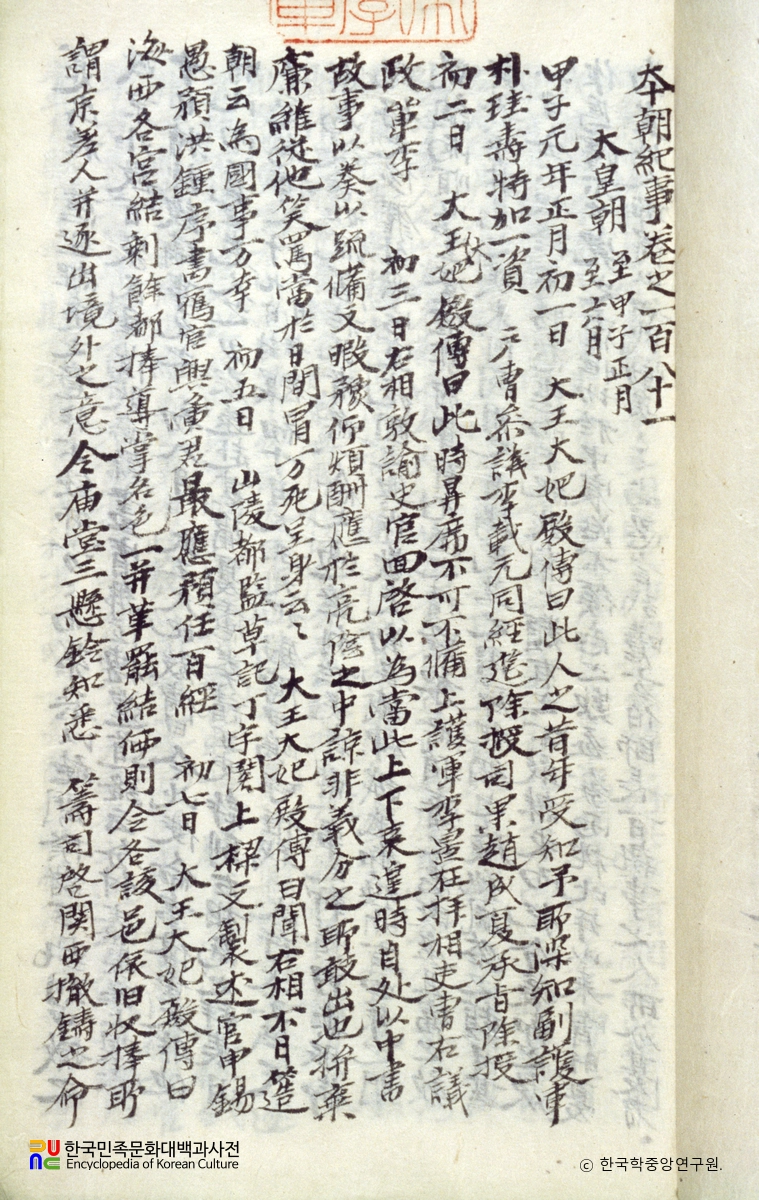 本朝紀事卷之一百八十一
太皇朝 至甲子正月 至六月
甲子元年正月初一日 大王大妃殿傳曰此人之昔年受知予所深知副護軍
朴珪壽特加一資 曹參議李載元同經筵除授司果趙成夏承旨除授
初二日 大王大妃殿傳曰此時鼎席不可不備上護軍李 拜相吏曹右議
政單李 初三日右相敦諭史官回啓以為當此上下 遑時自处以中書
故事以 以 備文暇 仰煩酬應於亮陰之中諒非義分之所敢出也 棄
廉維從他笑罵當於日間冒万死呈身云〻 大王大妃殿傳曰聞右相不日造
朝云為國事万幸 初五日 山陵都監草記丁字閣上樑文製述官申錫
愚預洪鍾序書寫官興 君最應預任百經 初七日 大王大妃殿傳曰
海西各宮結剩餘都捧導掌名色一并革罷結 則令各該邑依旧收捧所
謂京差人并逐出境外之意令庙堂三懸鈴知悉 籌司啓関西撤鑄之命
한국민족문화대백과사전
Encyclopedia of Korean Culture
© 한국학중앙연구원.